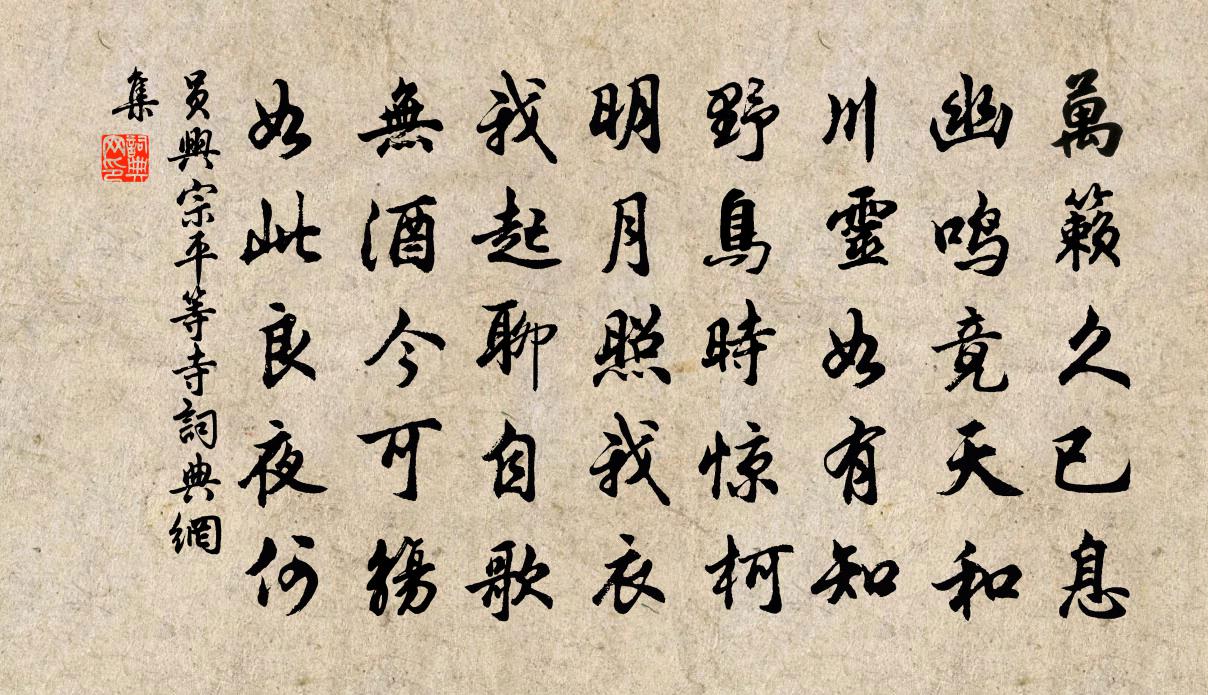 萬籟久已息
幽鸣竟天和
川靈如有知
野鳥時惊柯
明月照我衣
我起聊自歌
無酒今可觴
如此良夜何
員興宗平等寺詞典網
集
詞典
网印